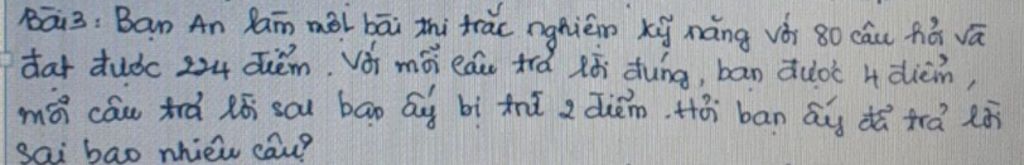 Bài 3: Bạn An làm một bài thi trắc nghiệm kỹ năng với 80 câu hỏi và
đạt được 224 điểm. Với mỗi câu trả lời đúng, bạn được 4 điểm,
mỗi câu trả lời sai bạn ấy bị trừ 2 điểm. Hỏi bạn ấy đã trả lời
sai bao nhiêu câu?